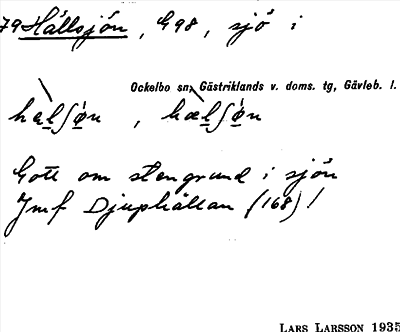 79 Hällsjön, G98, sjö i
Ockelbo sn, Gästriklands v. doms. tg, Gävleb. l.
hælʃø̀n, hæ̀lʃø̀n
Gott om stengrund i sjön
Jmf Djuphällan (168)!
LARS LARSSON 1935